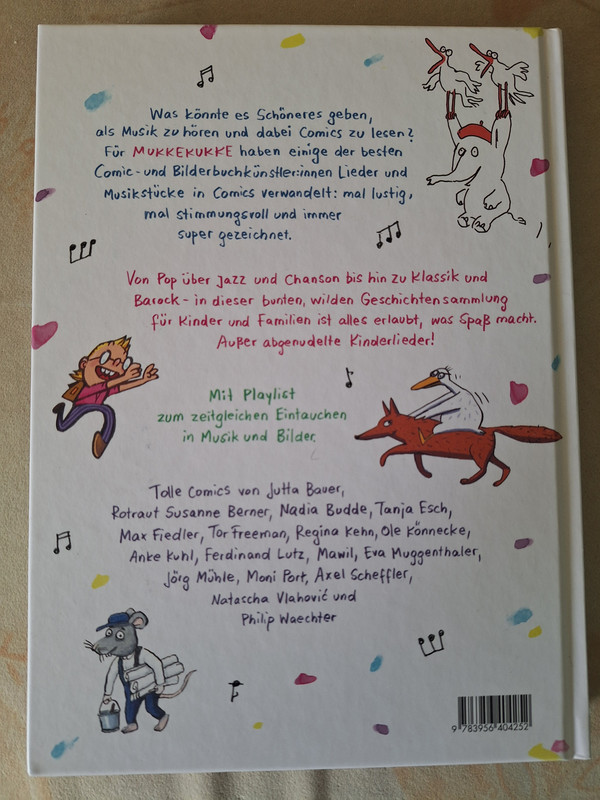 Was könnte es Schöneres geben,
als Musik zu hören und dabei Comics zu lesen?
Für MUKKEKUKKE haben einige der besten
Comic- und Bilderbuchkünstler:innen Lieder und
Musikstücke in Comics verwandelt: mal lustig,
mal stimmungsvoll und immer
super gezeichnet.
Von Pop über Jazz und Chanson bis hin zu Klassik und
Barock - in dieser bunten, wilden Geschichtensammlung
für Kinder und Familien ist alles erlaubt, was Spaß macht.
Außer abgenudelte Kinderlieder!
Mit Playlist
zum zeitgleichen Eintauchen
in Musik und Bilder.
Tolle Comics von Jutta Bauer,
Rotraut Susanne Berner, Nadia Budde, Tanja Esch,
Max Fiedler, Tor Freeman, Regina Kehn, Ole Könnecke,
Anke Kuhl, Ferdinand Lutz, Mawil, Eva Muggenthaler,
Jörg Mühle, Moni Port, Axel Scheffler,
Natascha Vlahović und
Philip Waechter
9 783956 404252